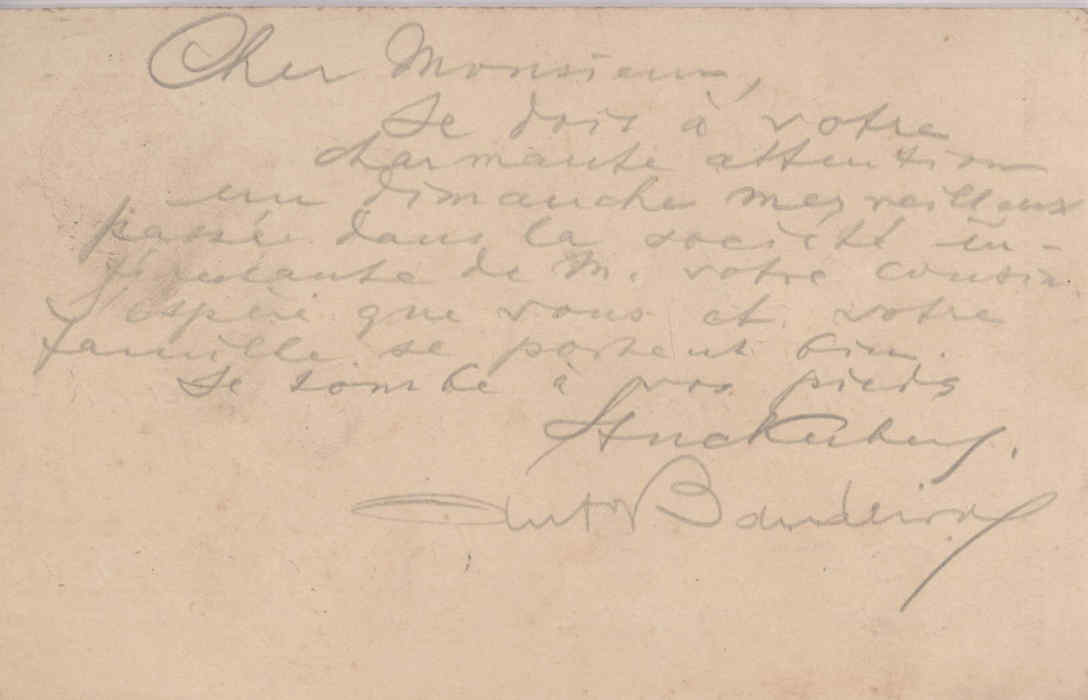 Cher Monsieur,
Je dois à votre
charmante attention
un dimanche merveilleux
passé dans la société in-
téressante de M. votre cousin.
J'espère que vous et votre
famille se portent bien.
Je tombe à vos pieds
Stuckenberg.
Antº Bandeira